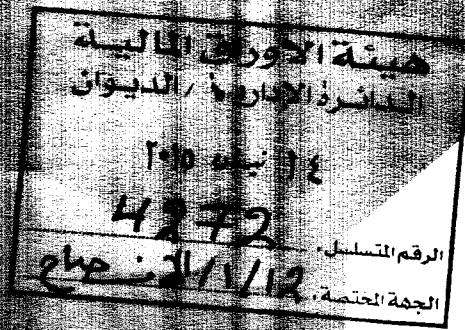 هيئة الأوراق المالية
الدائرة الإدارية / الديوان
١٤ نيسان ٢٠١٥
الرقم المتسلسل. 4272
الجهة المختصة. الافصاح